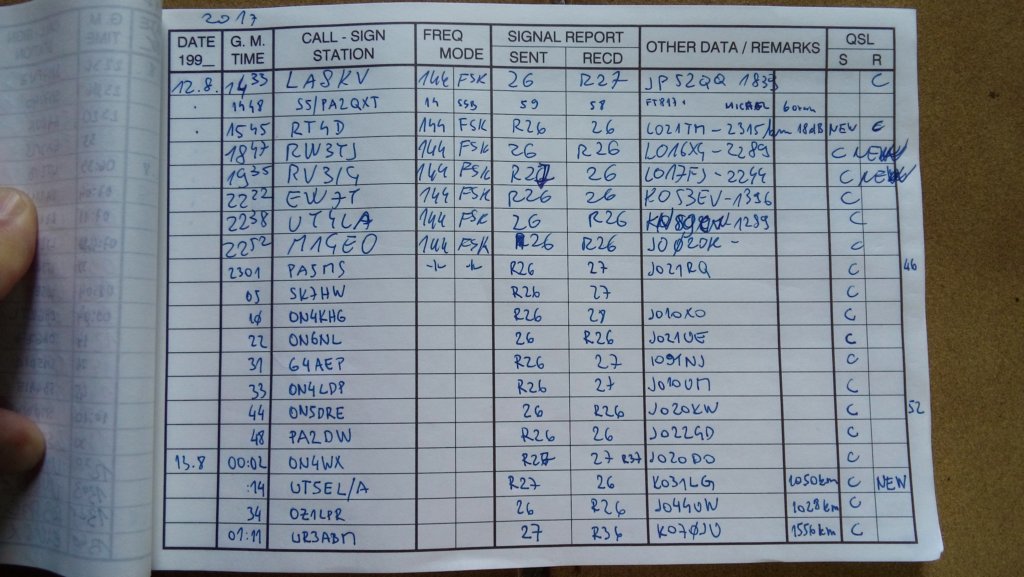 2017
DATE 199_ G. M. TIME CALL - SIGN STATION FREQ MODE SIGNAL REPORT SENT RECD OTHER DATA / REMARKS QSL S R
12.8. 1433 LA8KV 144 FSK 26 R27 JP52QQ 1839 C
. 1448 S5/PA2QXT 14 SSB 59 58 FT817 MICHAEL
. 1545 RT4D 144 FSK R26 26 LO21TM - 2315/km 18dB NEW C
1847 RW3TJ 144 FSK 26 R26 LO16XG - 2289 C NEW
1935 RV3IG 144 FSK R27 26 LO17FJ - 2244 C NEW
2222 EW7T 144 FSK R26 26 KO53EV - 1396 C
2238 UT4LA 144 FSK 26 R26 1299 C
2252 M1GEO 144 FSK R26 R26 JOØ2DK - C
2301 PA5MS R26 27 JO21RQ C 46
05 SK7HW R26 27 C
1Ø ON4KHG R26 28 JO10XO C
22 ON6NL 26 R26 JO21UE C
31 G4AEP R26 27 IO91NJ C
33 ON4LDP R26 27 JO10UM C
44 ON5DRE 26 R26 JO20KW C 52
48 PA2DW R26 26 JO22GD C
13.8 00:02 ON4WX R27 27 R37 JO20DO C
:14 UT5EL/A R27 26 KO31LG 1050km C NEW
34 OZ1LPR 26 R26 JO44UW 1028km C
01:11 UR3ABM 27 R36 KO70JU 1556km C